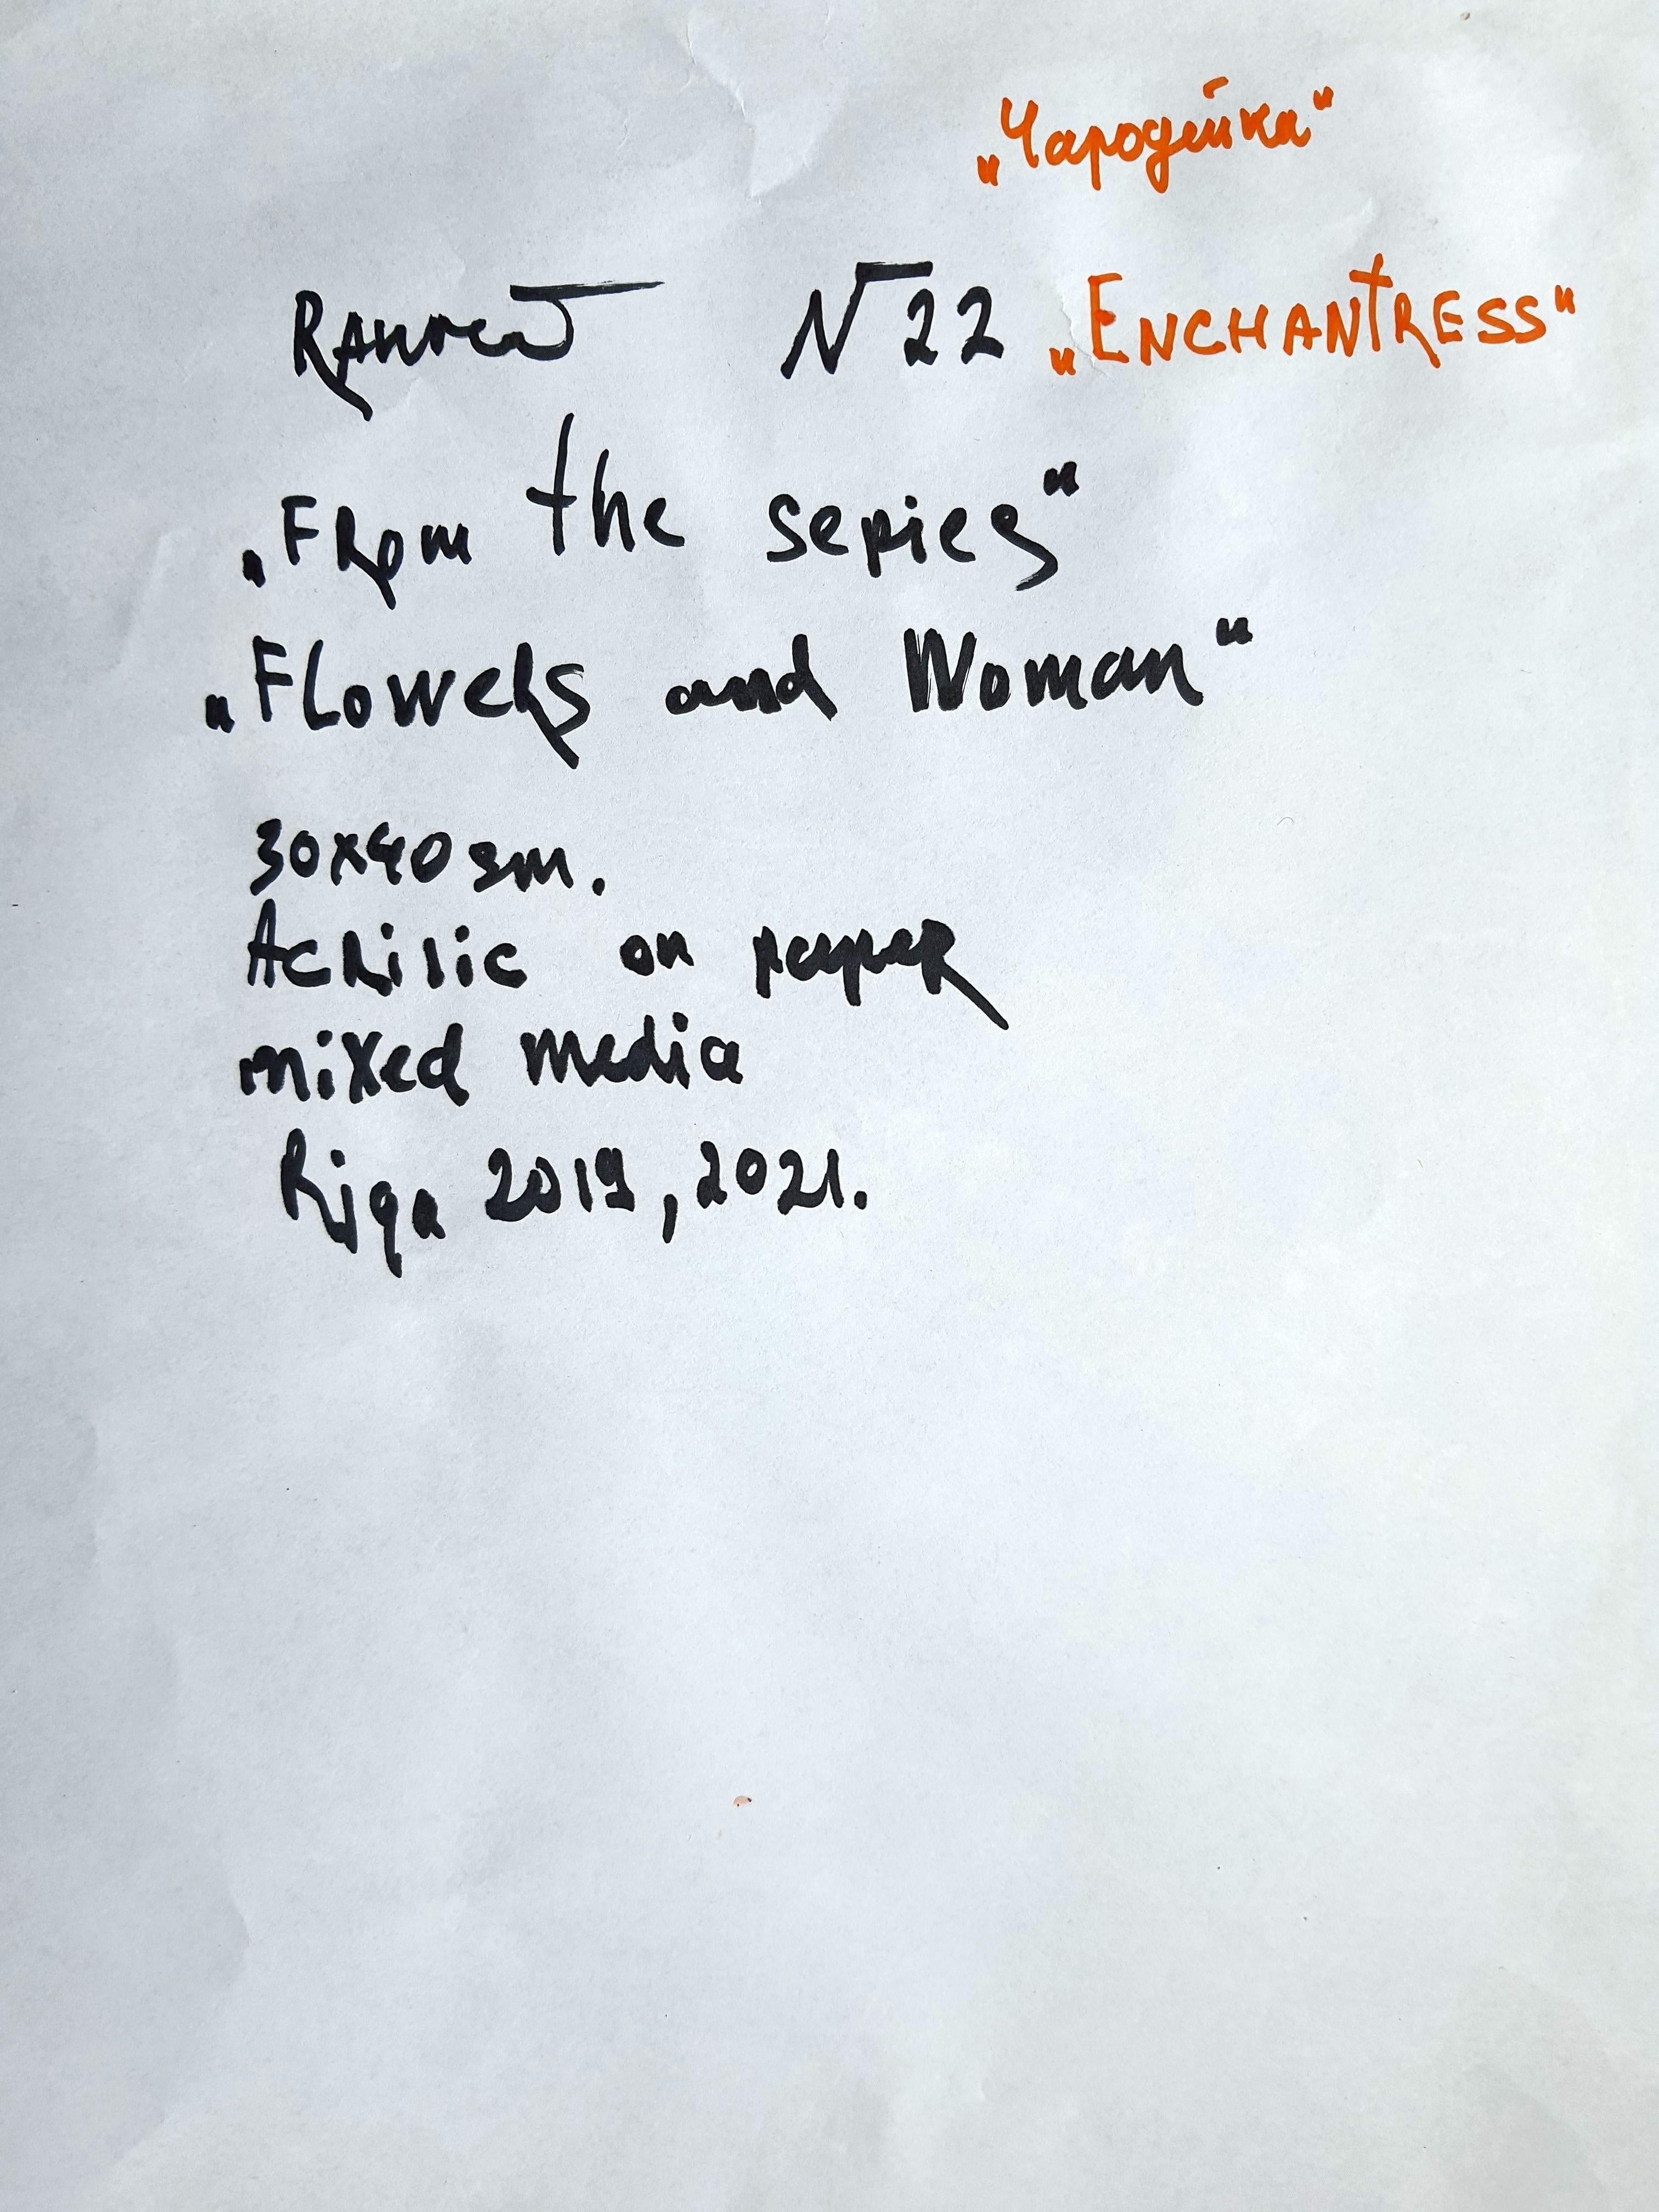 „Чародейка“
N 22 „ENCHANTRESS“
„From the series“
„Flowers and Woman“
30x40 sm.
Acrilic on paper
mixed media
Riga 2019, 2021.